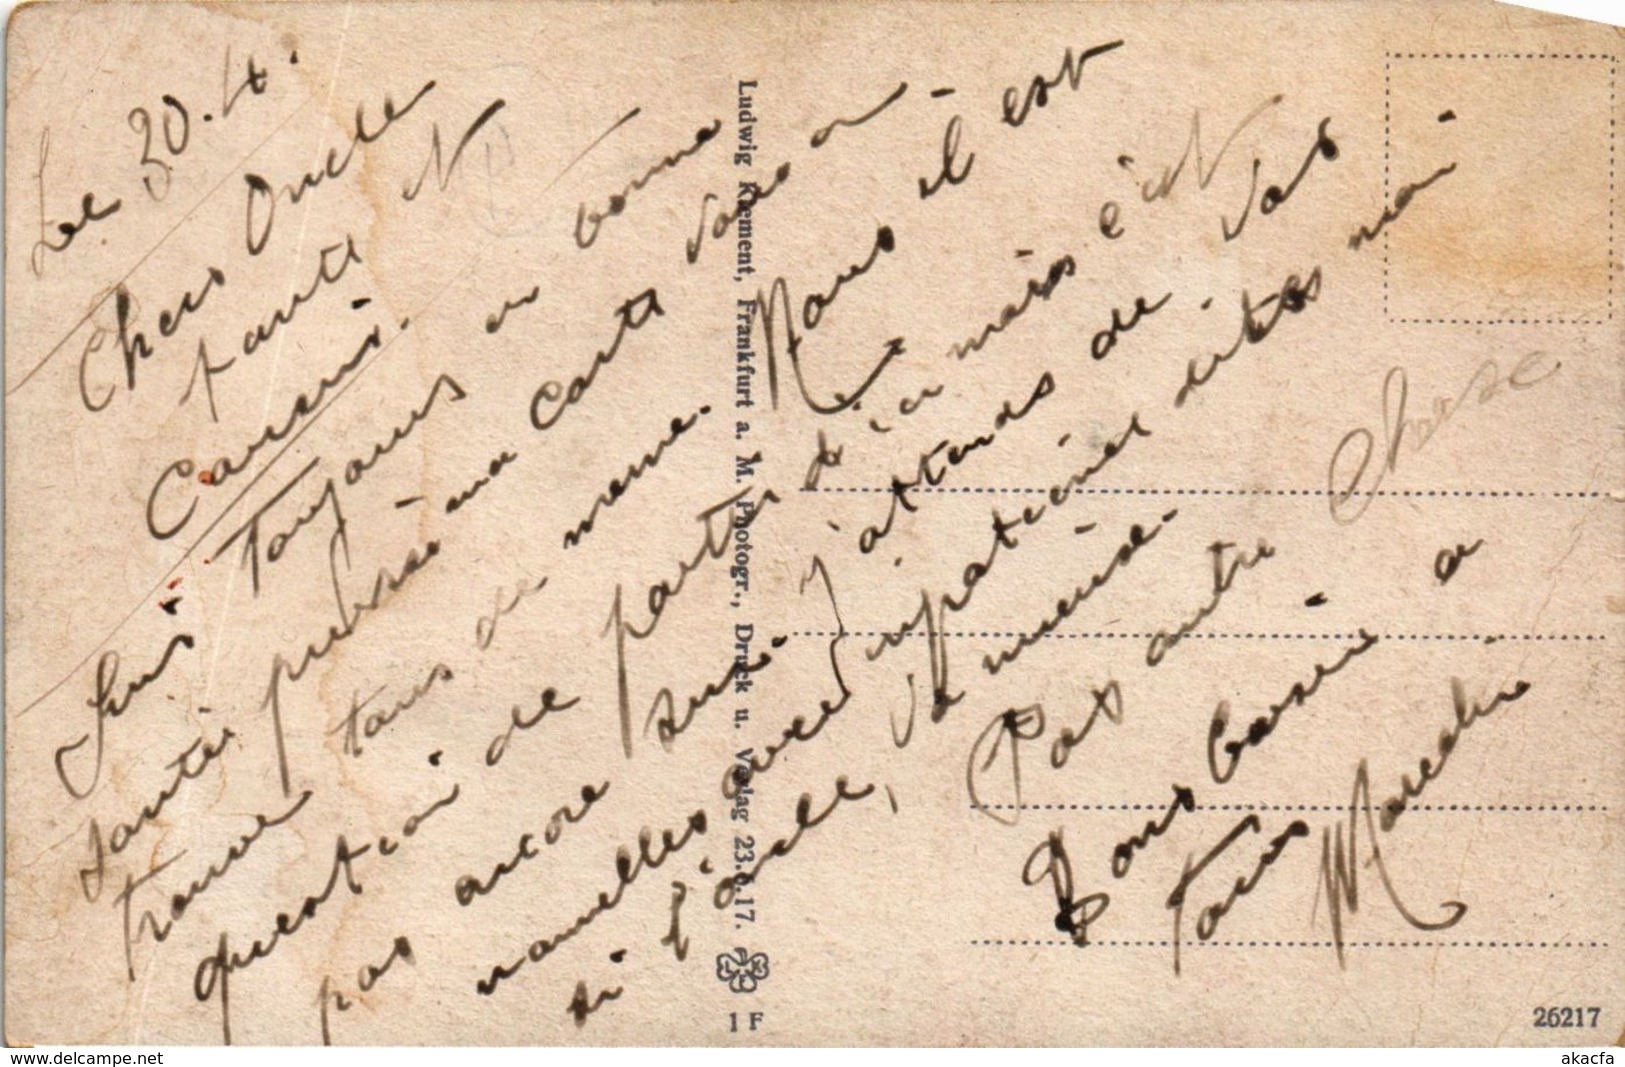 Le 30.4.
Chers Oncle
tante et
Cousins.
Suis toujours en bonne
santé, puisse ma carte vous en
trouver tous de meme. Nous il est
question de partir
pas encore sur. d'ici mais c'est
nouvelles avec J'attends de vos
si l'oncle, impatience dites moi
va mieux.
Pas autre chose
Bons baisers a
Tous
Ludwig Klement, Frankfurt a. M. Photogr., Druck u. Verlag 23.6.17.
1 F
26217
www.delcampe.net
akacfa